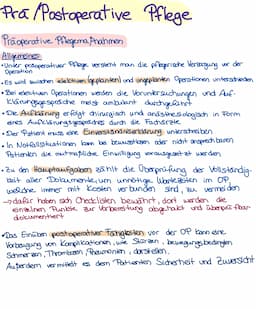 Prä/Postoperative Pflege
Präoperative Pflegemaßnahmen
Allgemeines
• Unter präoperativer Pflege versteht man die pflegerische Versorgung vor der
Operation
• Es wird zwischen elektiven (geplanten) und ungeplanten Operationen unterschieden
• Bei elektiven Operationen werden die Voruntersuchungen und Auf-
klärungsgespräche meist ambulant durchgeführt
• Die Aufklärung erfolgt chirurgisch und anästhesiologisch in Form
eines Aufklärungsgespräches durch die Fachärzte
• Der Patient muss eine Einverständniserklärung unterschreiben
• In Notfallsituationen kann bei bewusstlosen oder nicht ansprechbaren
Patienten die mutmaßliche Einwilligung vorausgesetzt werden
• Zu den Hauptaufgaben zählt die Überprüfung der Vollständig-
keit aller Dokumente, um unnötige Wartezeiten im OP,
welche immer mit Kosten verbunden sind, zu vermeiden
→ dafür haben sich Checklisten bewährt, dort werden die
einzelnen Punkte zur Vorbereitung abgehakt und überprüfbar
dokumentiert
• Das Einüben postoperativer Fähigkeiten vor der OP kann eine
Vorbeugung von Komplikationen, wie Stürzen, bewegungsbedingten
Schmerzen, Thrombosen, Pneumonien, darstellen.
Außerdem vermittelt es dem Patienten Sicherheit und Zuversicht